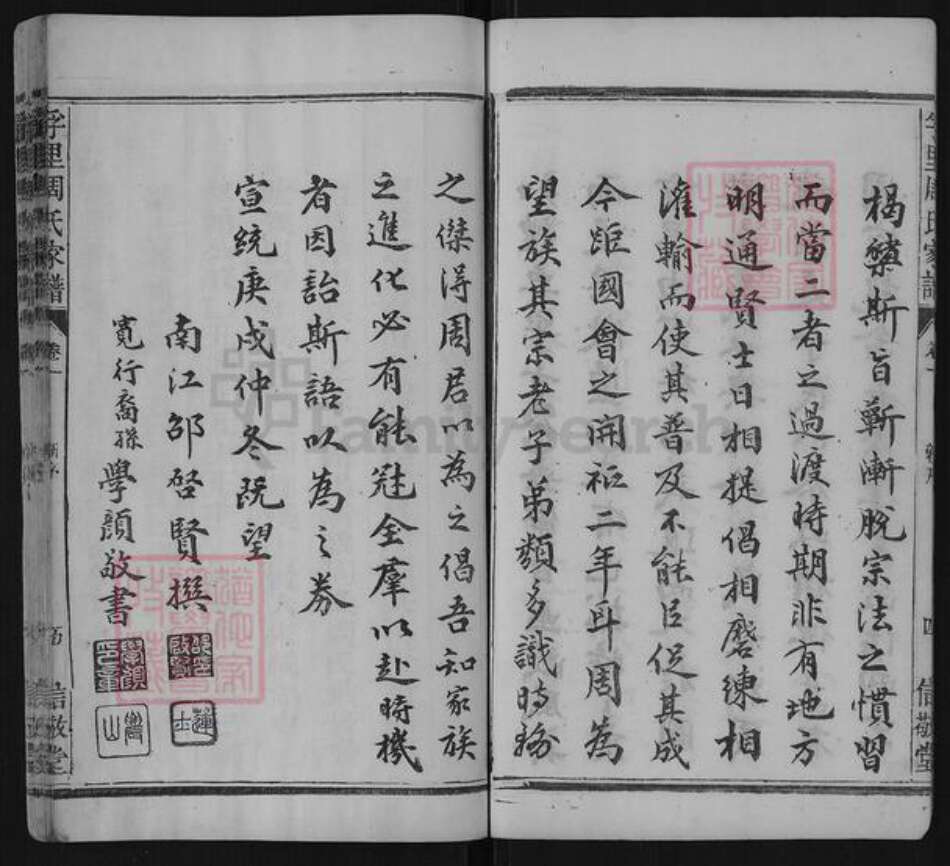 揭櫫斯旨蘄漸脫宗法之慣習
而當二者之過渡時期非有地方
明通賢士日相提倡相磨練相
灌輸而使其普及不能臣促其成
今距國會之開祗二年耳周為
望族其宗老子弟類多識時務
之傑得周君以為之倡吾知家族
之進化必有能冠全羣以赴時機
者因詒斯語以為之券
宣統庚戌仲冬既望
南江邵啓賢撰
寬行裔孫學顏敬書
周氏家譜
卷一
信敬堂
里周氏家譜
卷一
五
信敬堂
FamilySearch